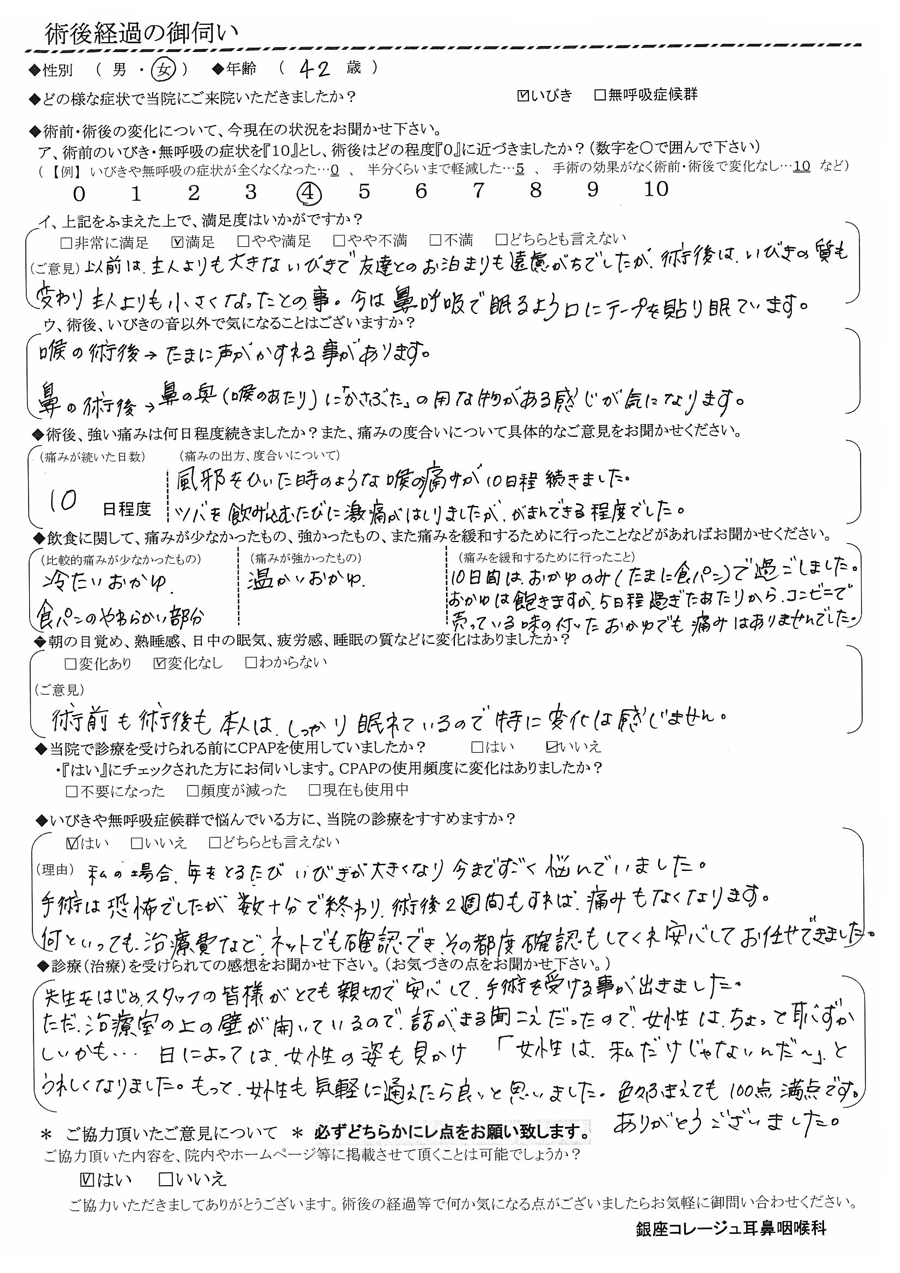 術後経過の御伺い
◆性別　（ 男 ・ 女 ）　◆年齢　（ 42 歳 ）
◆どの様な症状で当院にご来院いただきましたか？　☑いびき　□無呼吸症候群
◆術前・術後の変化について、今現在の状況をお聞かせ下さい。
ア、術前のいびき・無呼吸の症状を『10』とし、術後はどの程度『0』に近づきましたか？（数字を〇で囲んで下さい）
（【例】 いびきや無呼吸の症状が全くなくなった…0 、 半分くらいまで軽減した…5 、 手術の効果がなく術前・術後で変化なし…10 など）
0　1　2　3　④　5　6　7　8　9　10
イ、上記をふまえた上で、満足度はいかがですか？
□非常に満足　☑満足　□やや満足　□やや不満　□不満　□どちらとも言えない
（ご意見）以前は、主人よりも大きないびきで友達とのお泊まりも遠慮がちでしたが、術後は、いびきの質も
変わり 主人よりも小さくなったとの事。今は鼻呼吸で眠るよう口にテープを貼り眠ています。
ウ、術後、いびきの音以外で気になることはございますか？
喉の術後→たまに声がかすれる事があります。
鼻の術後→鼻の奥（喉のあたり）に「かさぶた」の用な物がある感じが気になります。
◆術後、強い痛みは何日程度続きましたか？また、痛みの度合いについて具体的なご意見をお聞かせください。
（痛みが続いた日数）　（痛みの出方、度合いについて）
風邪をひいた時のような喉の痛みが10日程続きました。
10 日程度　ツバを飲み込むたびに激痛がはしりましたが、がまんできる程度でした。
◆飲食に関して、痛みが少なかったもの、強かったもの、また痛みを緩和するために行ったことなどがあればお聞かせください。
（比較的痛みが少なかったもの）　（痛みが強かったもの）　（痛みを緩和するために行ったこと）
冷たいおかゆ.　温かいおかゆ.　10日間は、おかゆのみ（たまに食パン）で過ごしました。
おかゆは飽きますが、5日程過ぎたあたりから、コンビニで
食パンのやわらかい部分　売っている味の付いたおかゆでも痛みはありませんでした。
◆朝の目覚め、熟睡感、日中の眠気、疲労感、睡眠の質などに変化はありましたか？
□変化あり　☑変化なし　□わからない
（ご意見）
術前も術後も本人は、しっかり眠れているので特に変化は感じません。
◆当院で診療を受けられる前にCPAPを使用していましたか？　□はい　☑いいえ
・『はい』にチェックされた方にお伺いします。CPAPの使用頻度に変化はありましたか？
□不要になった　□頻度が減った　□現在も使用中
◆いびきや無呼吸症候群で悩んでいる方に、当院の診療をすすめますか？
☑はい　□いいえ　□どちらとも言えない
（理由）私の場合、年をとるたび いびきが大きくなり今まですごく悩んでいました。
手術は恐怖でしたが 数十分で終わり、術後2週間もすれば、痛みもなくなります。
何といっても、治療費など、ネットでも確認でき、その都度確認もしてくれ安心してお任せできました。
◆診療（治療）を受けられての感想をお聞かせ下さい。（お気づきの点をお聞かせ下さい。）
先生をはじめ、スタッフの皆様がとても親切で安心して、手術を受ける事が出きました。
ただ、治療室の上の壁が開いているので、話がまる聞こえだったので、女性は、ちょっと恥ずか
しいかも… 日によっては、女性の姿も見かけ 「女性は、私だけじゃないんだ〜」と
うれしくなりました。もって、女性も気軽に通えたら良いと思いました。色々ふまえても100点満点です。
ありがとうございました。
＊ ご協力頂いたご意見について ＊ 必ずどちらかにレ点をお願い致します。
ご協力頂いた内容を、院内やホームページ等に掲載させて頂くことは可能でしょうか？
☑はい　□いいえ
ご協力いただきましてありがとうございます。術後の経過等で何か気になる点がございましたらお気軽に御問い合わせください。
銀座コレージュ耳鼻咽喉科